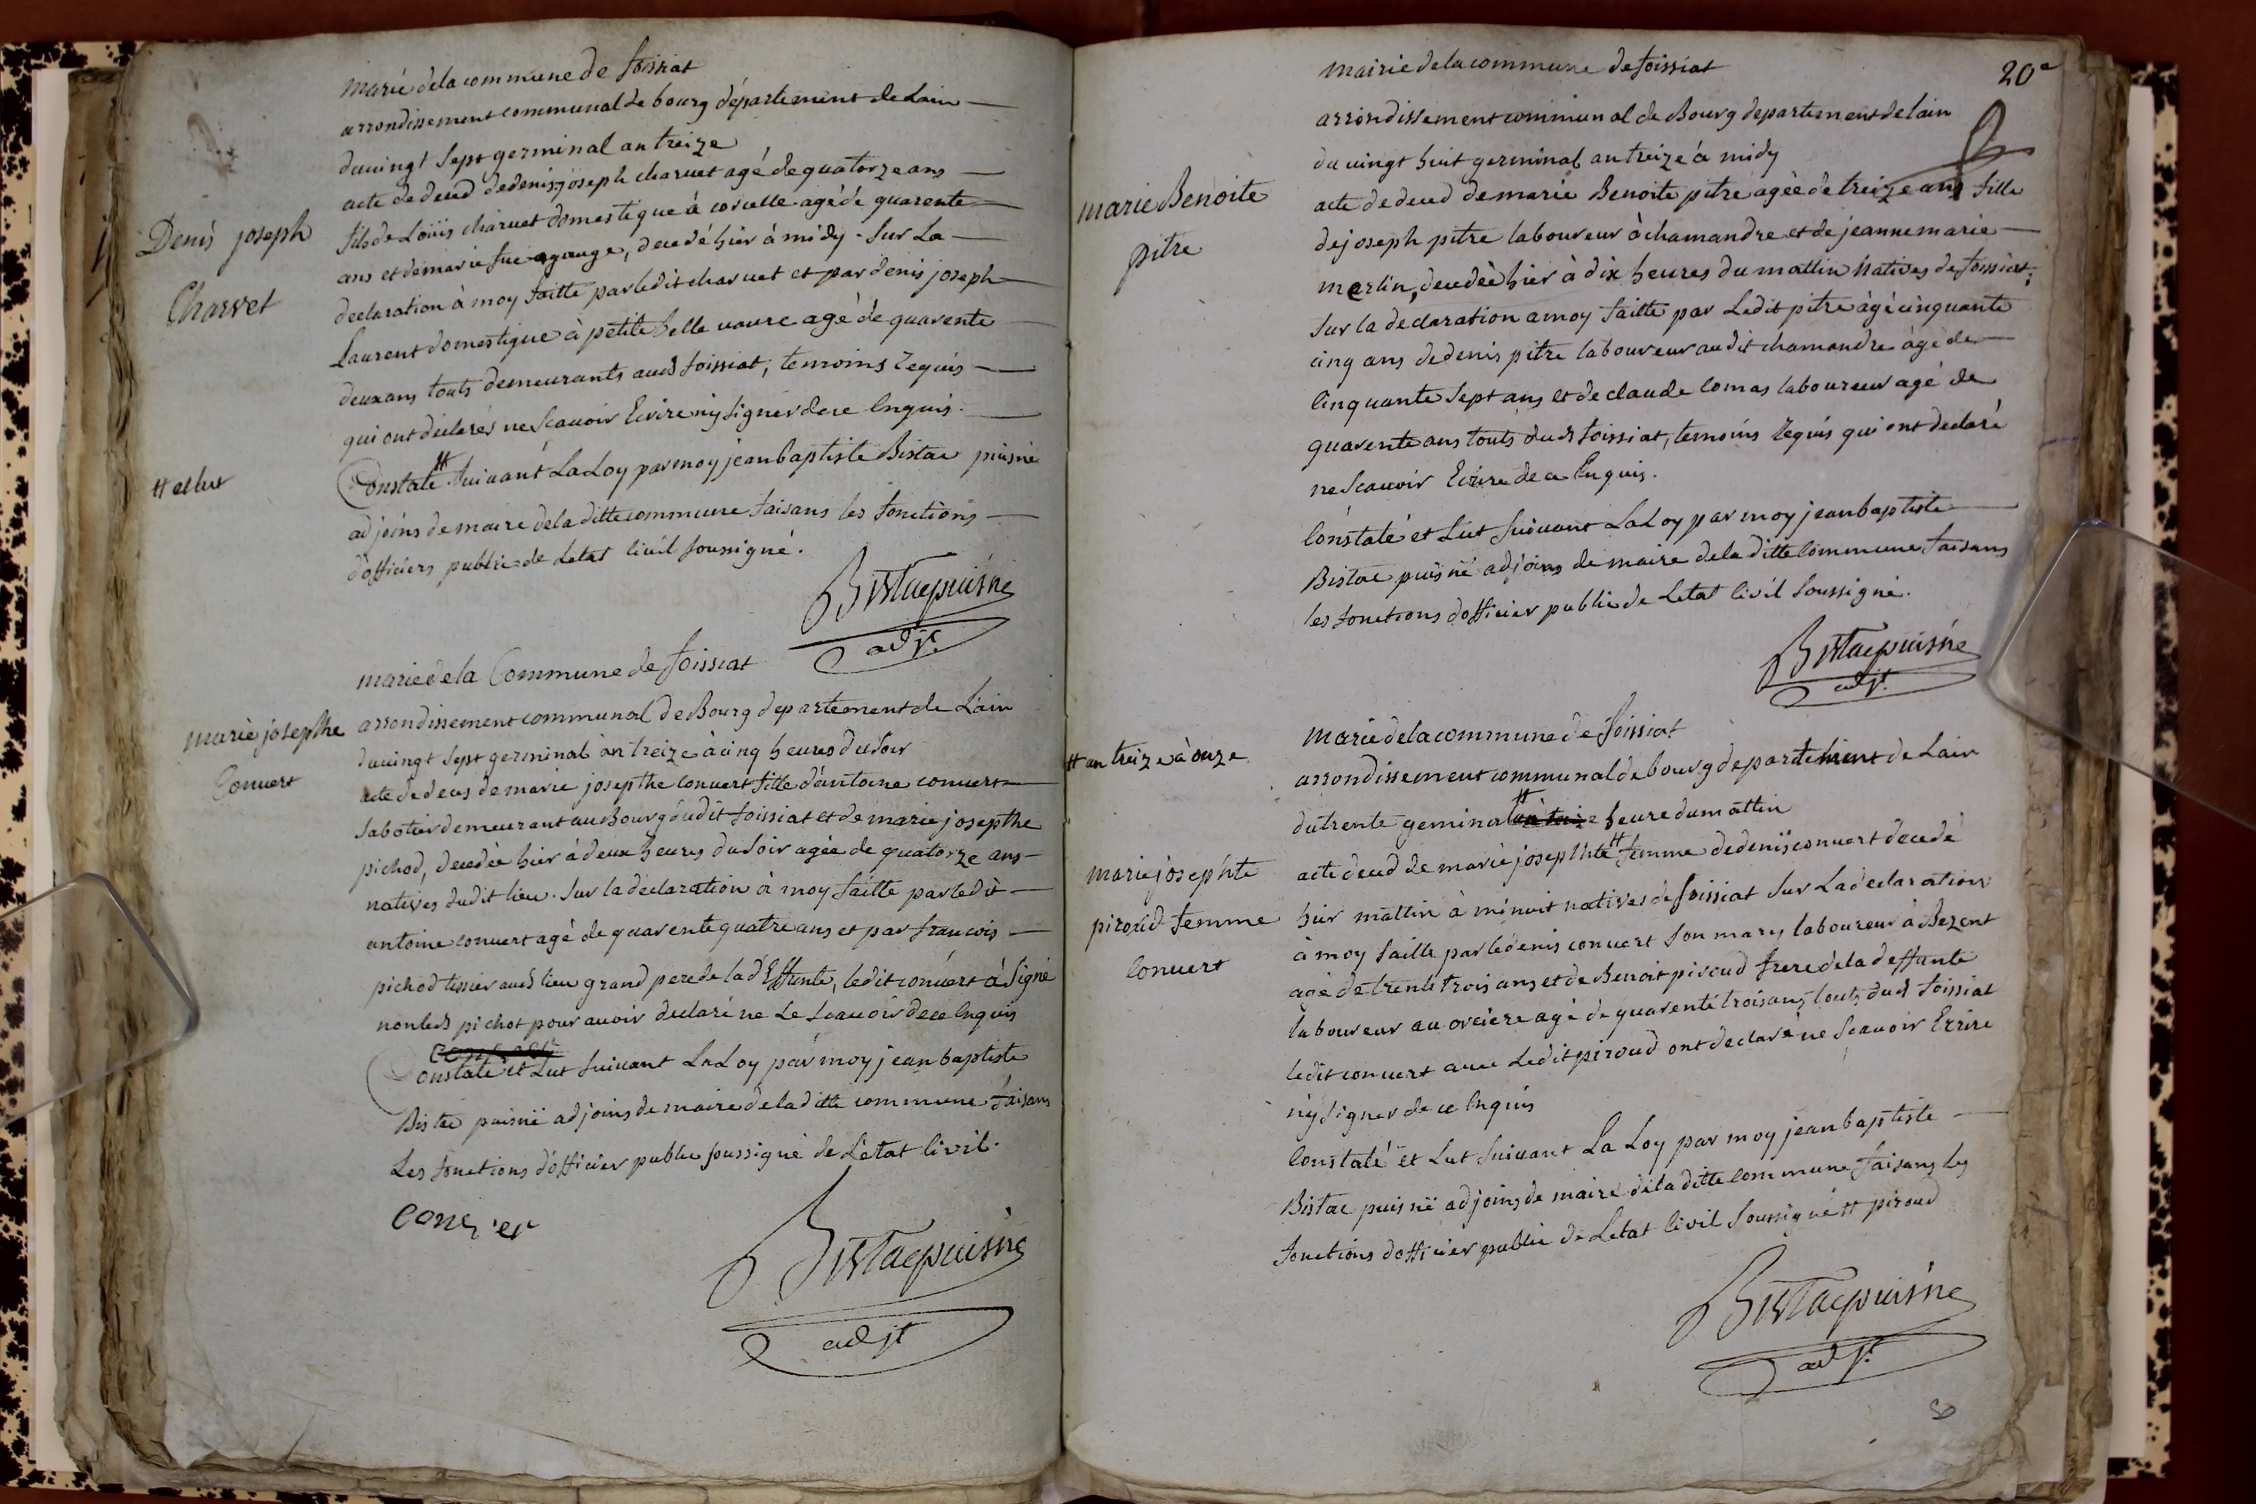 marie dela commune de foissiat
arrondissement communal de bourg département de Lain
du vingt sept germinal an treize
acte de deud de denis joseph charuet agé de quatorze ans
Denis joseph
Charvet
fils de Loüis charuet domestique à agé de quarente
ans et de marie gouge, decedé hier à midy. Sur La
declaration à moy faitte par ledit charuet et par denis joseph
Laurent domestique à petite belle uaure agé de quarente
deux ans touts demeurants aud foissiat, temoins Requis
qui ont déclarés ne Scauoir Ecrire ny Signer de ce Enquis.
# et lut
Constaté # Suiuant La Loy par moy jean baptiste Bistac puisné
adjoins de maire dela ditte commune faisans les fonctions
dofficiers public de Letat Ciuil Soussigné.
Bistac puisné
adjt
marie de la Commune de foissiat
marie josepthe
Conuert
arrondissement communal de Bourg departement de Lain
du uingt Sept germinal an treize à cinq heures du Soir
acte de deces de marie josepthe Conuert fille dantoine conuert
Sabotier demeurant au Bourg dudit foissiat et de marie josepthe
pichod, decedée hier à deux heures du Soir agée de quatorze ans
natives dudit lieu. Sur la declaration à moy faitte par ledit
antoine conuert agé de quarente quatre ans et par francois
pichod tissier aud lieu grand pere de la deffunte, ledit conuert à Signé
non led pichot pour auoir declaré ne Le Scauoir de ce Enquis
Constaté et Lut Suiuant La Loy par moy jean baptiste
Bistac puisné adjoins de maire de la ditte commune faisans
Les fonctions dofficier public soussigné de Létat Civil.
Bistac puisné
adjt
20e
mairie dela commune de foissiat
arrondissement communal de Bourg departement de lain
du uingt huit germinal an treize à midy
marie Benoite
pitre
acte de deud de marie Benoite pitre agée de treize ans fille
de joseph pitre laboureur à chamandre et de jeanne marie
merlin, decedée hier à dix heures du mattin Natives de foissiat,
Sur la declaration a moy faitte par Ledit pitre âgé cinquante
cinq ans de denis pitre laboureur audit chamandre âgé de
Cinquante Sept ans et de claude Comas laboureur agé de
quarente ans touts dud foissiat, temoins Requis qui ont declaré
ne Scauoir Ecrire de ce Enquis.
Constaté et Lut Suiuant La Loy par moy jean baptiste
Bistac puisné adjoins de maire dela ditte Commune faisans
les fonctions dofficier public de Letat Civil Soussigné.
Bistac puisné
adjt
marie dela commune de foissiat
arrondissement communal de bourg departement de Lain
# an treize à onze
du trente geminal # heure du mattin
marie josephte
piroud femme
Conuert
acte deud de marie josepthte # femme de denis conuert decedé
hier mattin à minuit natives de foissiat Sur La declaration
à moy faitte par le denis conuert Son mary laboureur à Bezent
agé de trente trois ans et de Benoit piroud frere de la deffunte
laboureur au orciere agé de quarente trois ans touts dud foissiat
ledit conuert auec Ledit piroud ont declaré ne Scauoir Ecrire
ny Signer de ce Enquis
Constaté et Lut Suiuant La Loy par moy jean baptiste
Bistac puisné adjoins de maire de la ditte Commune faisans les
fonctions dofficier public de Letat Civil Soussigné # piroud
Bistac puisné
adjt